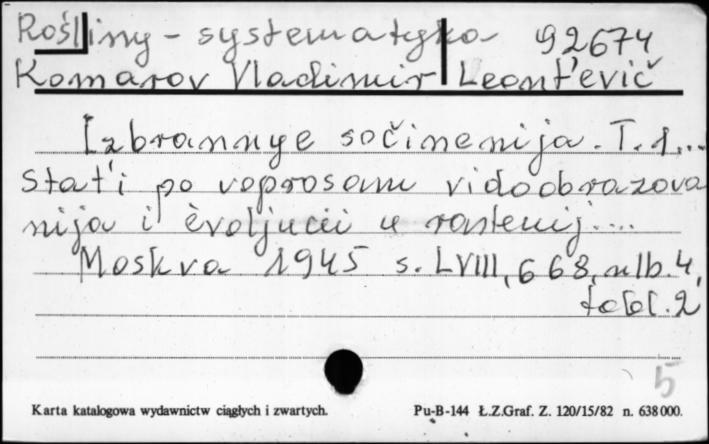 Rośliny - systematyka 92674
Komarov Vladimir Leont'evič
Izbrannye sočinenija. T. 1...
Stat'i po voprosam vidoobrazova
nija i èvoljucii u rastenij....
Moskva 1945 s. LVIII, 668, nlb. 4,
tabl. 2
5
Karta katalogowa wydawnictw ciągłych i zwartych. Pu-B-144 Ł.Z.Graf. Z. 120/15/82 n. 638000.